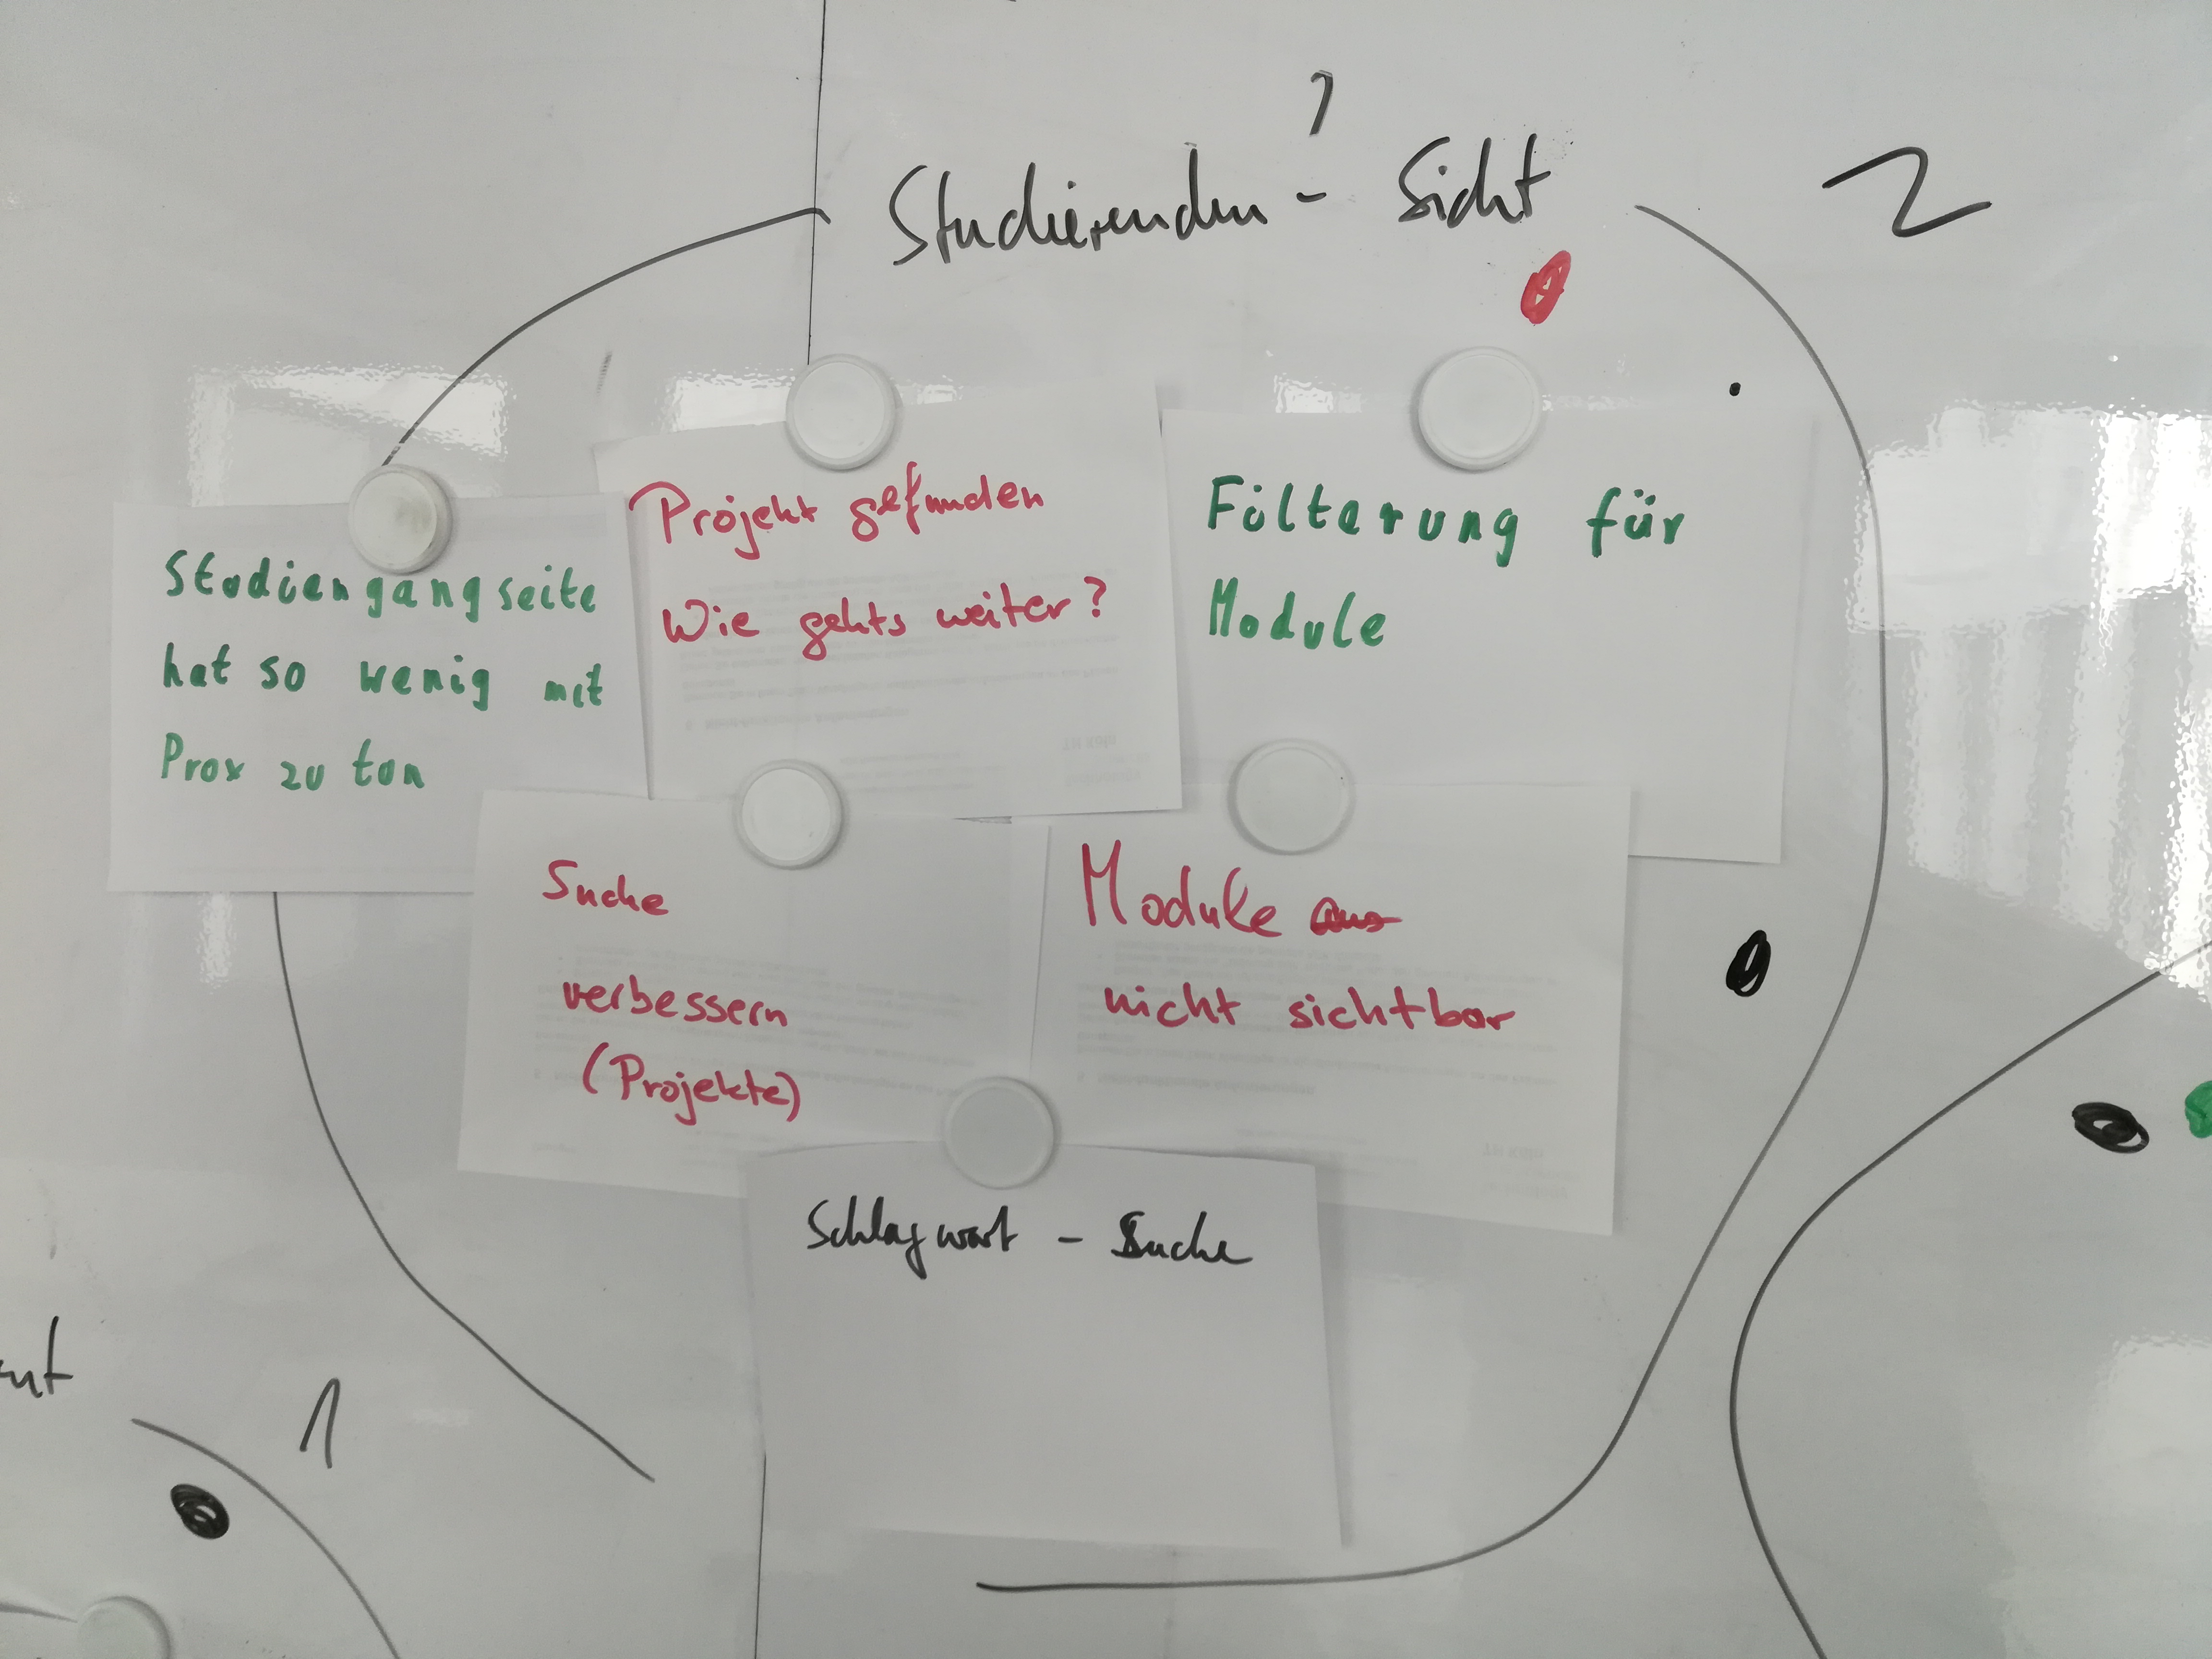 Studierenden - Sicht
2
Studiengangseite
hat so wenig mit
Prox zu tun
Projekt gefunden
Wie gehts weiter?
Filterung für
Module
Suche
verbessern
(Projekte)
Module aus
nicht sichtbar
Schlagwort - Suche
1